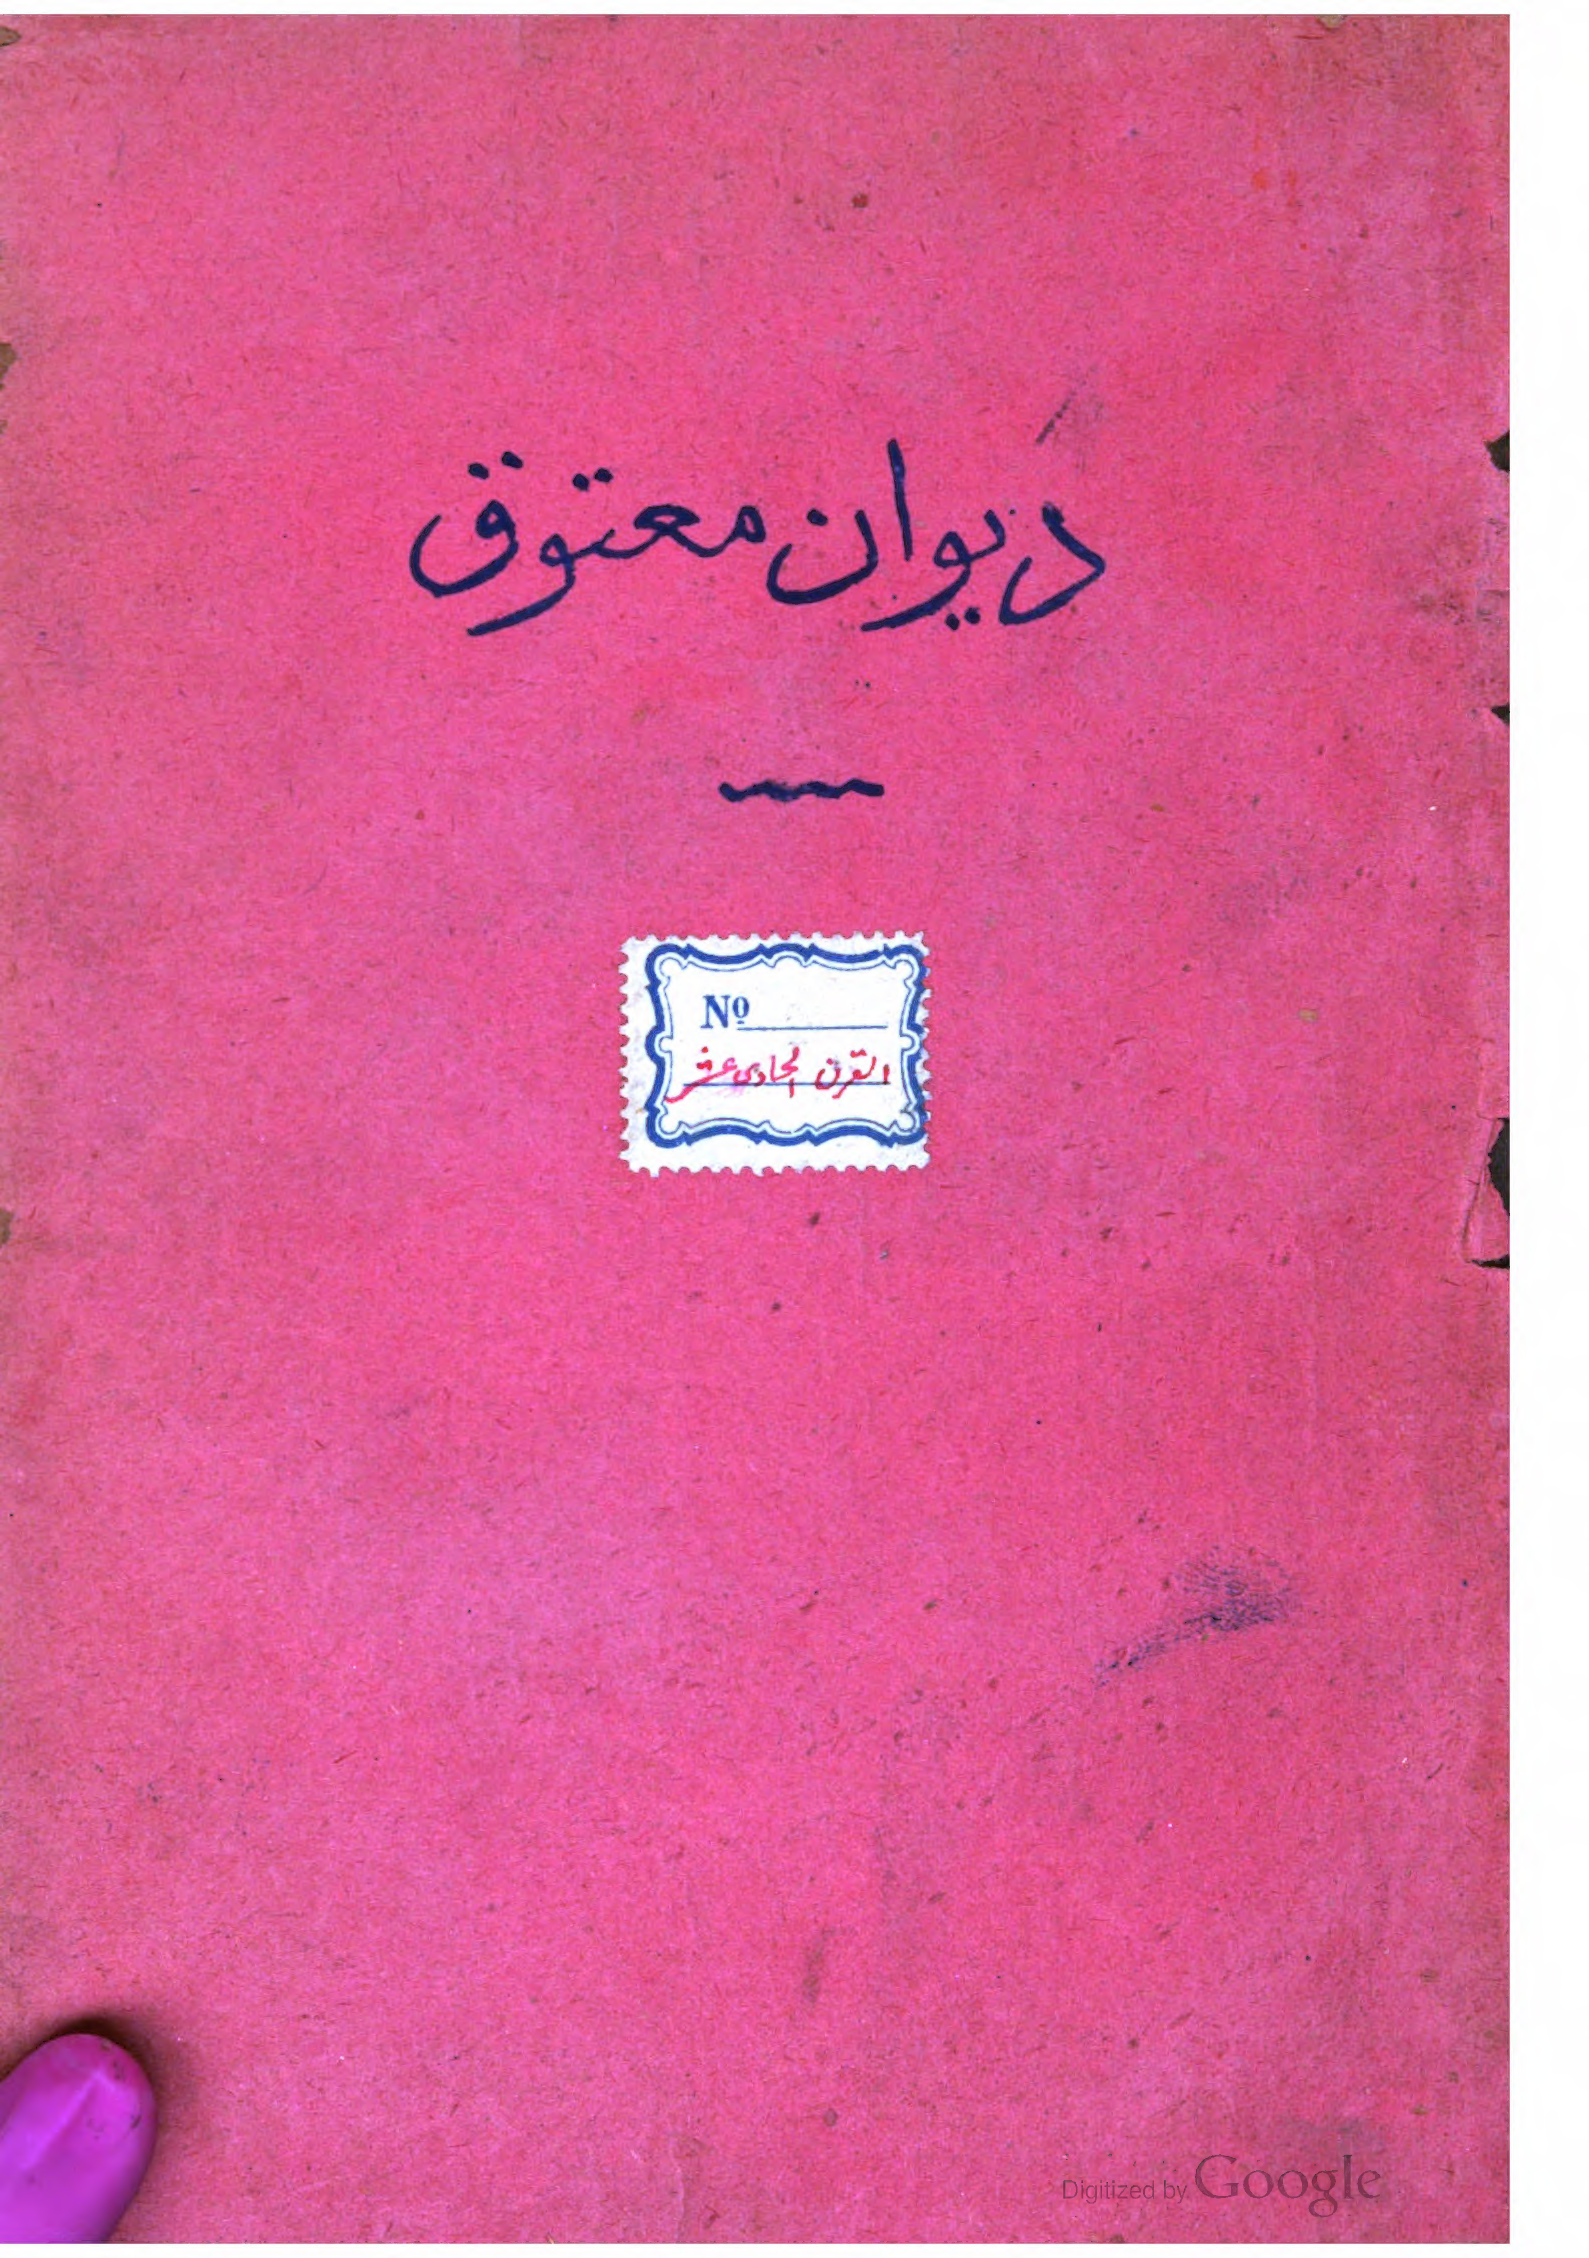 ديوان معتوق
Nº
القرن الحادى عشر
Digitized by Google